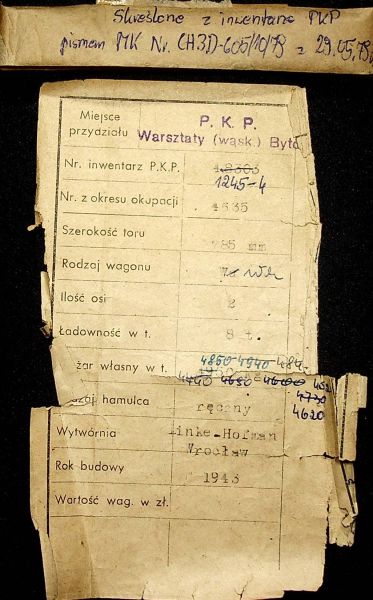 Skreślono z inwentarza PKP
pismem MK Nr. CH3D-605/10/79 z 29.05.79
Miejsce przydziału P. K. P.
Warsztaty (wąsk.) Byto
Nr. inwentarz P.K.P. 48303
1245-4
Nr. z okresu okupacji 4635
Szerokość toru 785 mm
Rodzaj wagonu
Ilość osi 2
Ładowność w t. 8 t.
żar własny w t. 4850 4940 484
4620
hamulca ręczny
Wytwórnia inke-Hofman
Wrocław
Rok budowy 1943
Wartość wag. w zł.